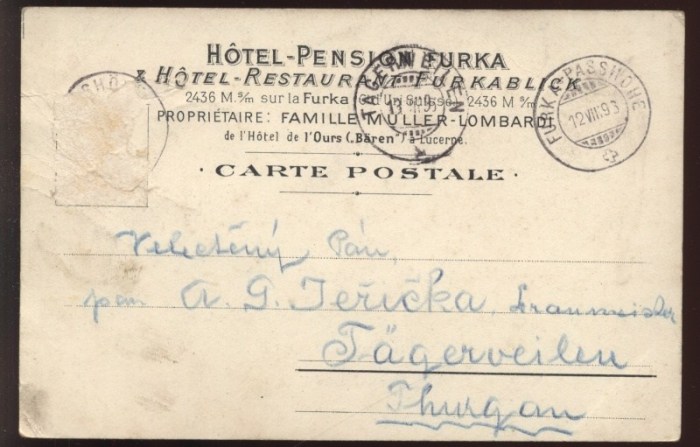 HÔTEL-PENSION FURKA
& HÔTEL-RESTAURANT FURKABLICK
2436 M. s/m sur la Furka (Ct. d'Uri Suisse) 2436 M s/m
PROPRIÉTAIRE: FAMILLE MÜLLER-LOMBARDI
de l'Hôtel de l'Ours („Bären") à Lucerne.
· CARTE POSTALE ·
SHÖ
TÆGERWEILEN
FURKA-PASSHÖHE
12 VII. 93
Veletěný Pán,
pan A. G. Jeřička, Braumeister
Tägerveilen
Thurgau